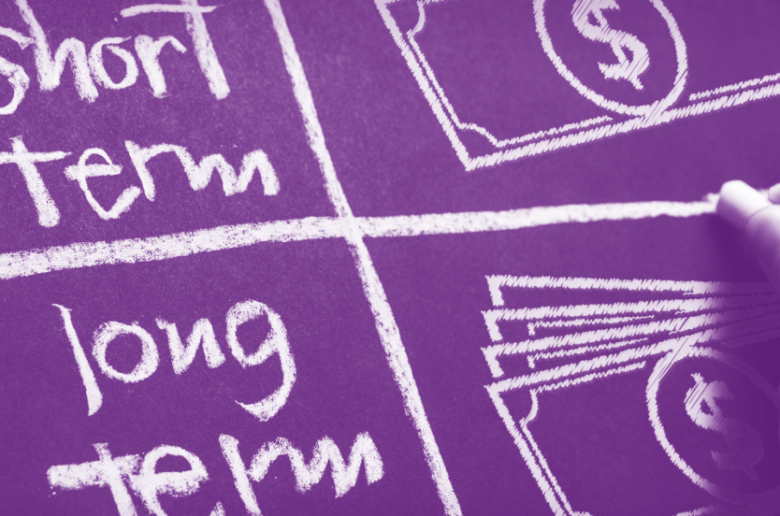 short
term
$
long
term
$